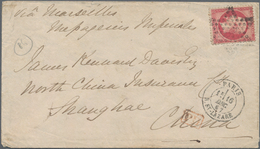 via Marseilles
Messageries Imperiales
James Kennard Davis Esq
North China Insurance
Shanghae
China
PARIS